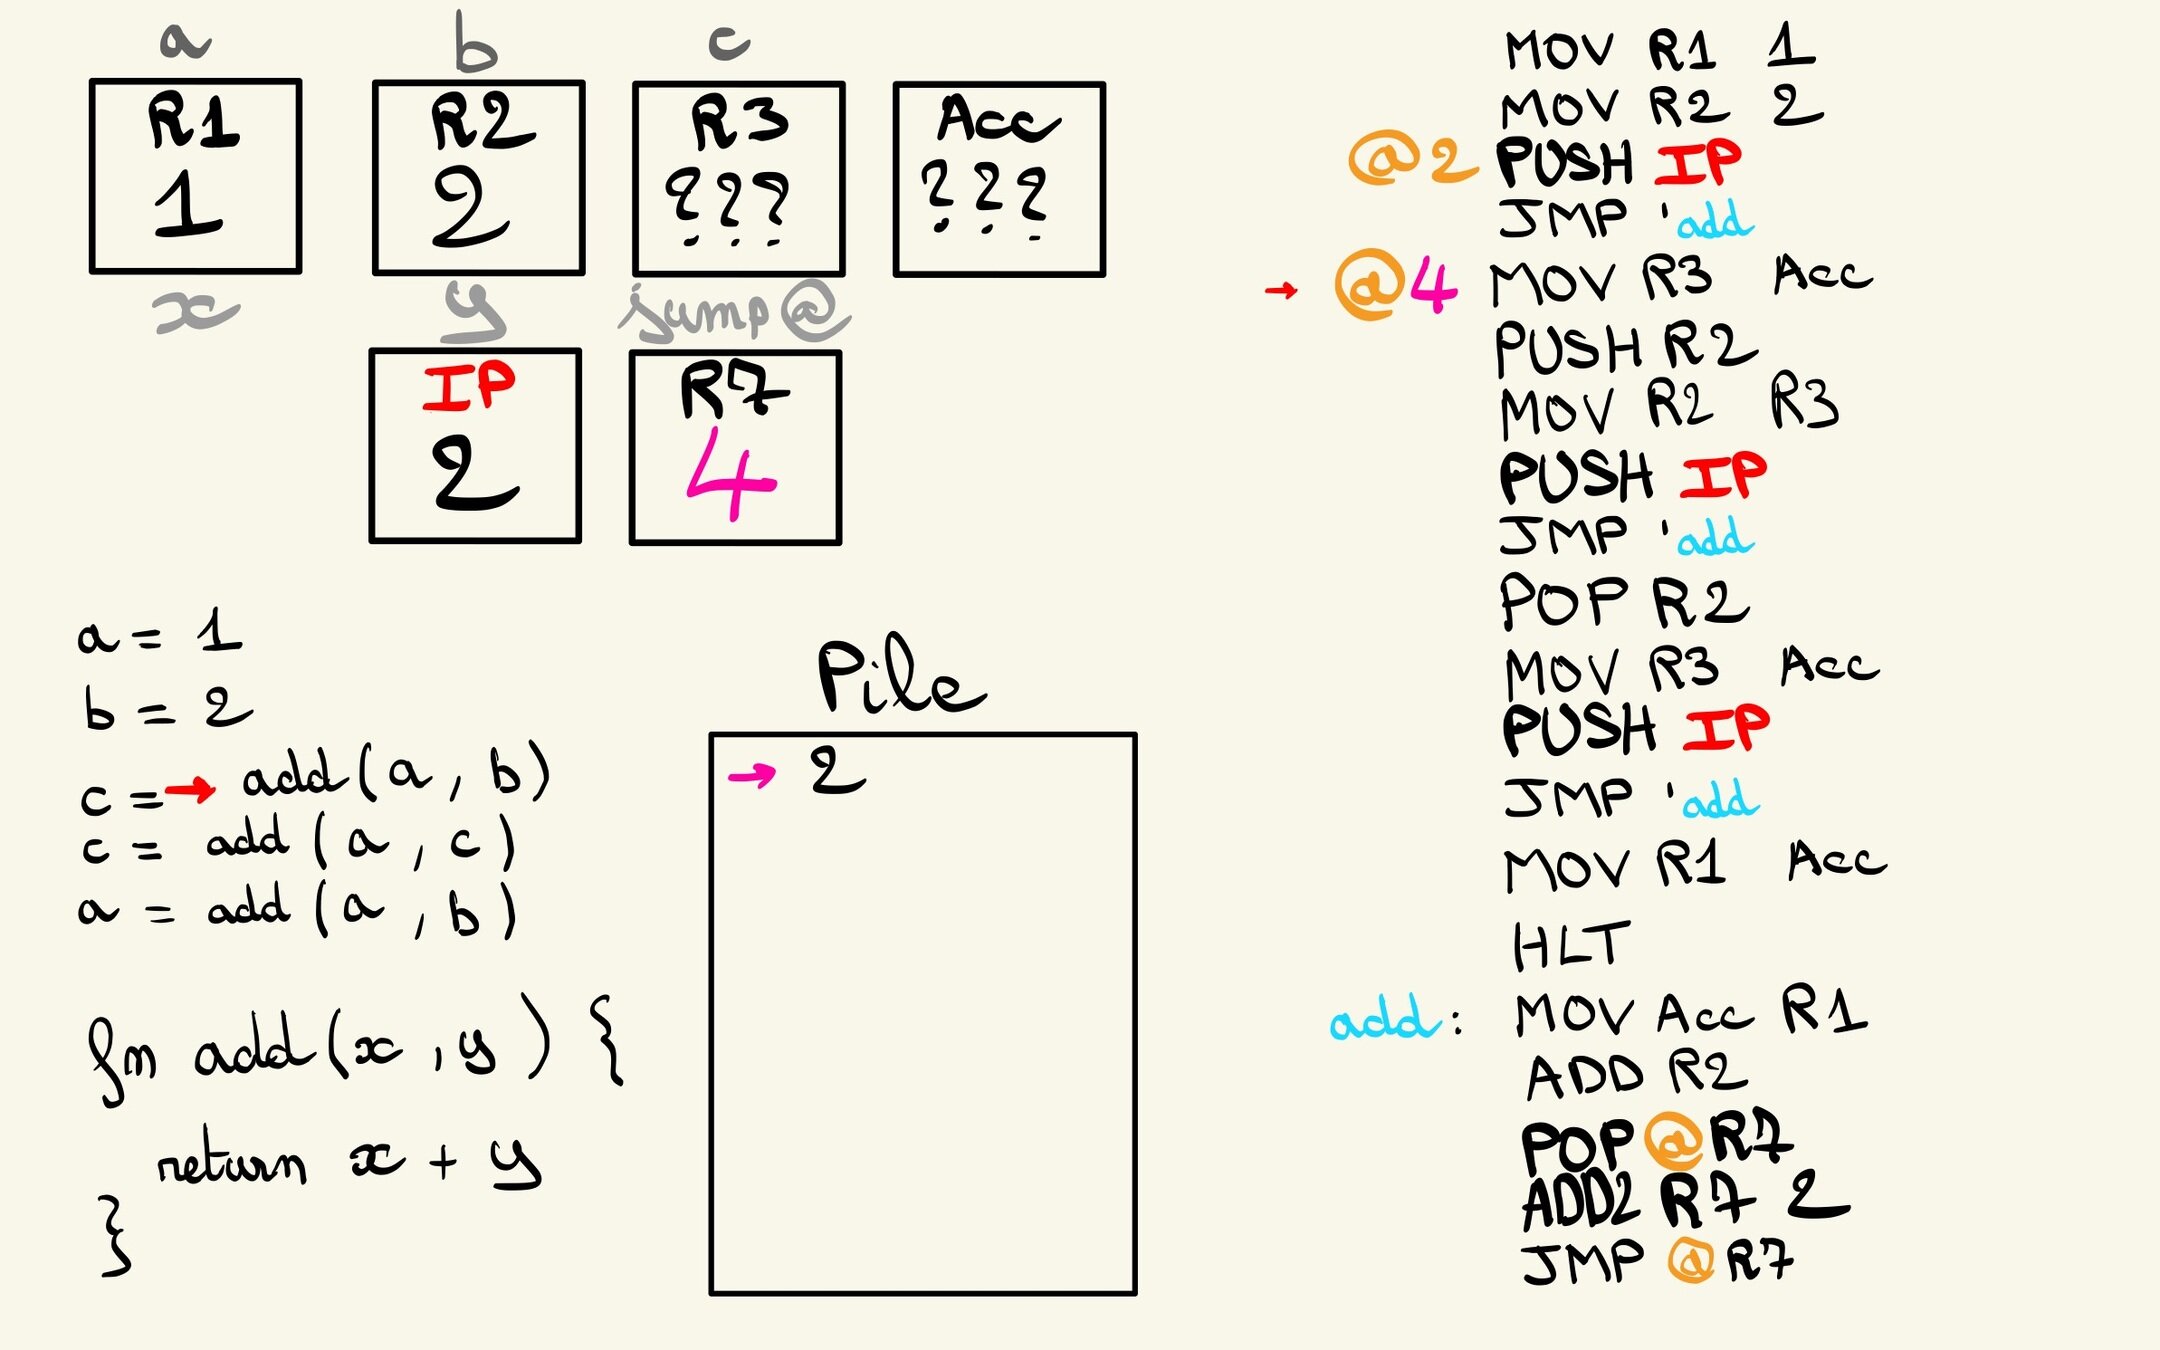 a b c
R1 R2 R3 Acc
1 2 ??? ???
x y jump@
IP R7
2 4
a = 1
b = 2
c = → add(a, b)
c = add(a, c)
a = add(a, b)
fn add(x, y) {
return x + y
}
Pile
→ 2
MOV R1 1
MOV R2 2
@2 PUSH IP
JMP 'add
→ @4 MOV R3 Acc
PUSH R2
MOV R2 R3
PUSH IP
JMP 'add
POP R2
MOV R3 Acc
PUSH IP
JMP 'add
MOV R1 Acc
HLT
add: MOV Acc R1
ADD R2
POP @R7
ADD2 R7 2
JMP @R7